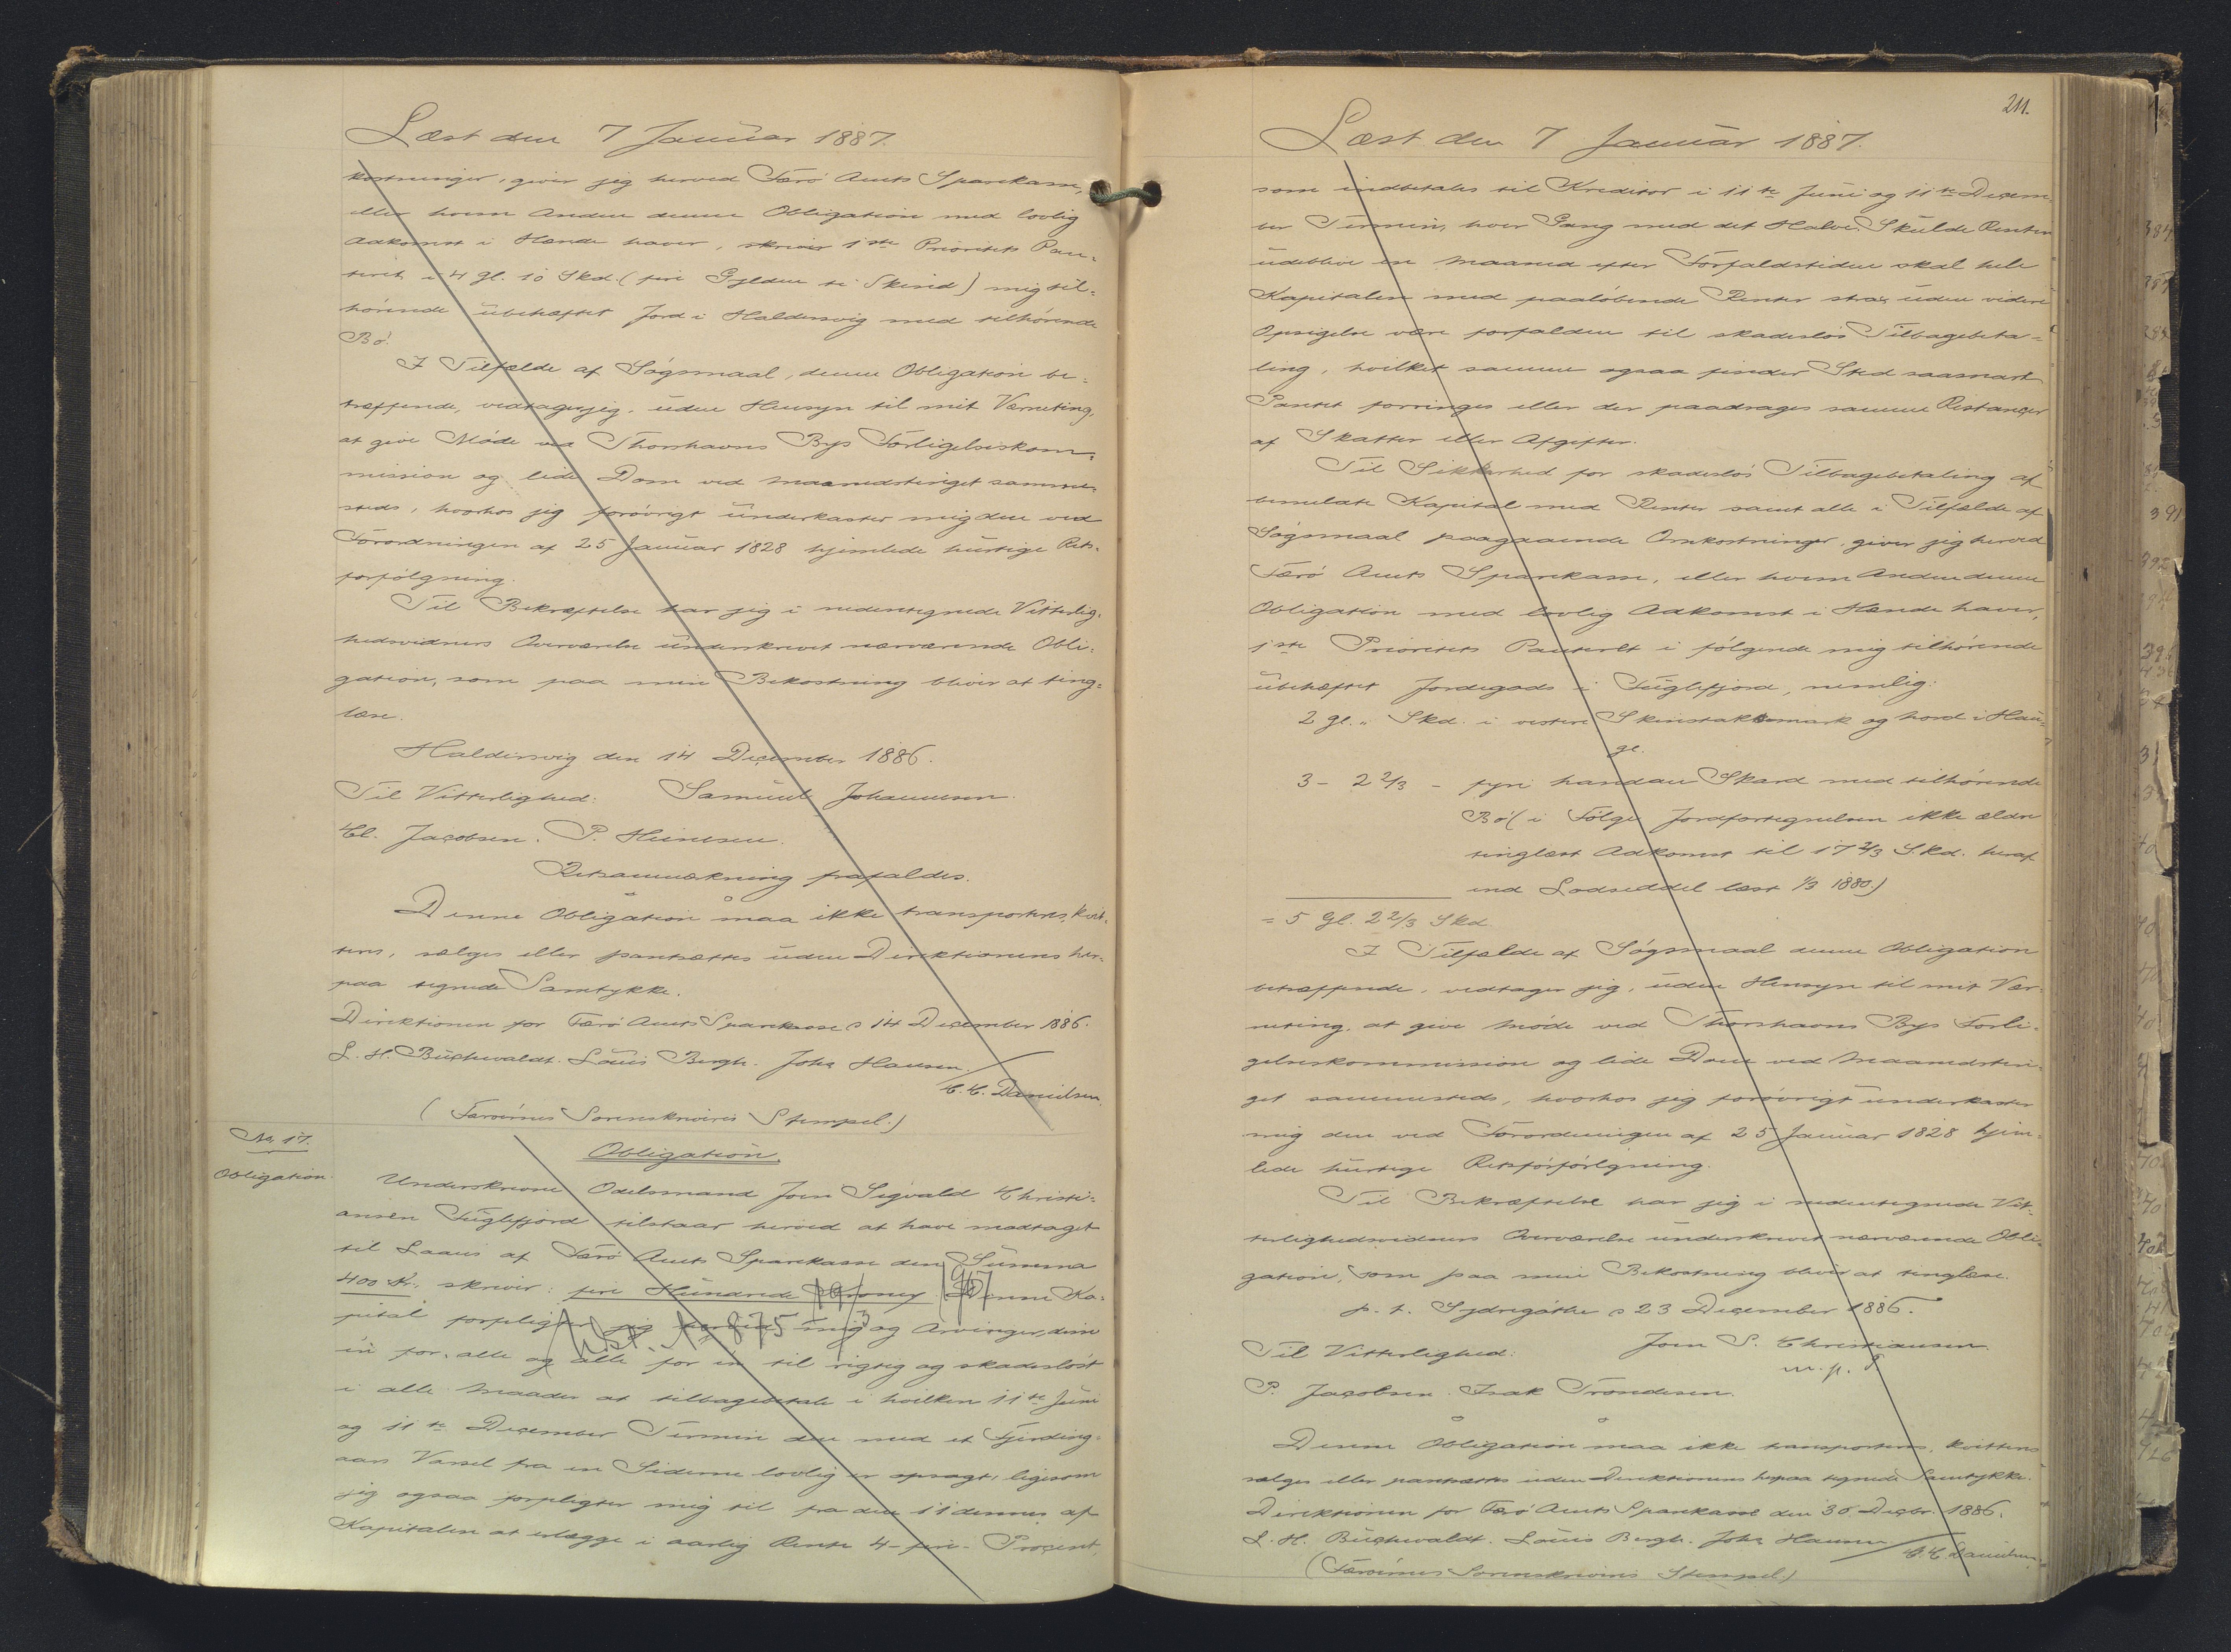 Læst den 7 Januar 1887.
kostninger, giver jeg herved Færö Amts Sparekasse,
eller hvem Anden denne Obligation med lovlig
Adkomst i Hænde haver, skriver 1ste Prioritets Pan-
teret i 4 gl. 10 Skd. (fire Gylden ti Skind) mig til-
hørende ubehæftet Jord i Haldersvig med tilhørende
Bö.
I Tilfælde af Søgsmaal, denne Obligation be-
træffende, vedtager jeg, uden Hensyn til mit Værneting,
at give Møde ved Thorshavns Bys Forligelseskom-
mission og lide Dom ved Maanedstinget samme-
steds, hvorhos jeg forøvrigt underkaster mig den ved
Forordningen af 25 Januar 1828 hjemlede hurtige Rets-
forfølgning.
Til Bekræftelse har jeg i nedentegnede Vitterlig-
hedsvidners Overværelse underskrevet nærværende Obli-
gation, som paa min Bekostning bliver at ting-
læse.
Haldersvig den 14 December 1886.
Til Vitterlighed: Samuel Johannesen.
Cl. Jacobsen. P. Heinesen.
Retsanmærkning frafaldes.
Denne Obligation maa ikke transporteres, kvit-
teres, sælges eller pantsættes uden Direktionens her-
paa tegnede Samtykke.
Direktionen for Færö Amts Sparekasse d 14 December 1886.
L. H. Buchwaldt. Louis Bergh. Johs Hansen.
/ C. C. Danielsen.
(Færøernes Sorenskriveris Stempel.)
No. 17.
Obligation.
Obligation.
Underskrevne Odelsmand Joen Sigvald Christi-
ansen Fuglefjord tilstaar herved at have modtaget
til Laans af Færö Amts Sparekasse den Summa
400 Kr., skriver: fire Hundrede Kroner. Denne Ka-
pital forpligter jeg herved mig og Arvinger, den
én for alle og alle for én til rigtig og skadesløst
i alle Maader at tilbagebetale i hvilken 11te Juni
og 11te December Termin den med et Fjerding-
aars Varsel fra en af Siderne lovlig er opsagt, ligesom
jeg ogsaa forpligter mig til fra den 11 dennes af
Kapitalen at erlægge i aarlig Rente 4 - fire - Procent,
211.
Læst den 7 Januar 1887.
som indbetales til Kreditor i 11te Juni og 11te Decem-
ber Termin, hver Gang med det Halve. Skulde Renten
udeblive en Maaned efter Forfaldstiden skal hele
Kapitalen med paaløbende Renter strax uden videre
Opsigelse være forfalden til skadesløs Tilbagebeta-
ling, hvilket samme ogsaa finder Sted saasnart
Pantet forringes eller der paadrages samme Restancer
af Skatter eller Afgifter.
Til Sikkerhed for skadesløs Tilbagebetaling af
bemeldte Kapital med Renter samt alle i Tilfælde af
Søgsmaal paagaaende Omkostninger, giver jeg herved
Færö Amts Sparekasse, eller hvem Anden denne
Obligation med lovlig Adkomst i Hænde haver,
1ste Prioritets Panteret i følgende mig tilhørende
ubehæftet Jordegods i Fuglefjord, nemlig:
2 gl. " Skd. i vestere Skinstakkemark og hord i Hau-
ge.
3 - 2 2/3 - fyri handan Skard med tilhørende
Bö (i Følge Jordfortegnelsen ikke ældre
tinglæst Adkomst til 17 2/3 Skd. heraf
end Lodseddel læst 1/3 1880.)
= 5 gl. 2 2/3 Skd.
I Tilfælde af Søgsmaal denne Obligation
betræffende, vedtager jeg, uden Hensyn til mit Vær-
neting, at give Møde ved Thorshavns Bys Forli-
gelseskommission og lide Dom ved Maanedstin-
get sammesteds, hvorhos jeg forøvrigt underkaster
mig den ved Forordningen af 25 Januar 1828 hjem-
lede hurtige Retsforfølgning.
Til Bekræftelse har jeg i nedentegnede Vit-
terlighedsvidners Overværelse underskrevet nærværende Obli-
gation, som paa min Bekostning bliver at tinglæse.
p. t. Sydregöthe d 23 December 1886.
Til Vitterlighed: Joen S. Christiansen
m. p. F
P. Jacobsen. Isak Trondesen.
Denne Obligation maa ikke transporteres, kvitteres
sælges eller pantsættes uden Direktionens herpaa tegnede Samtykke.
Direktionen for Færö Amts Sparekasse den 30 Decbr. 1886.
L. H. Buchwaldt. Louis Bergh. Johs Hansen / C. C. Danielsen.
(Færøernes Sorenskriveris Stempel.)